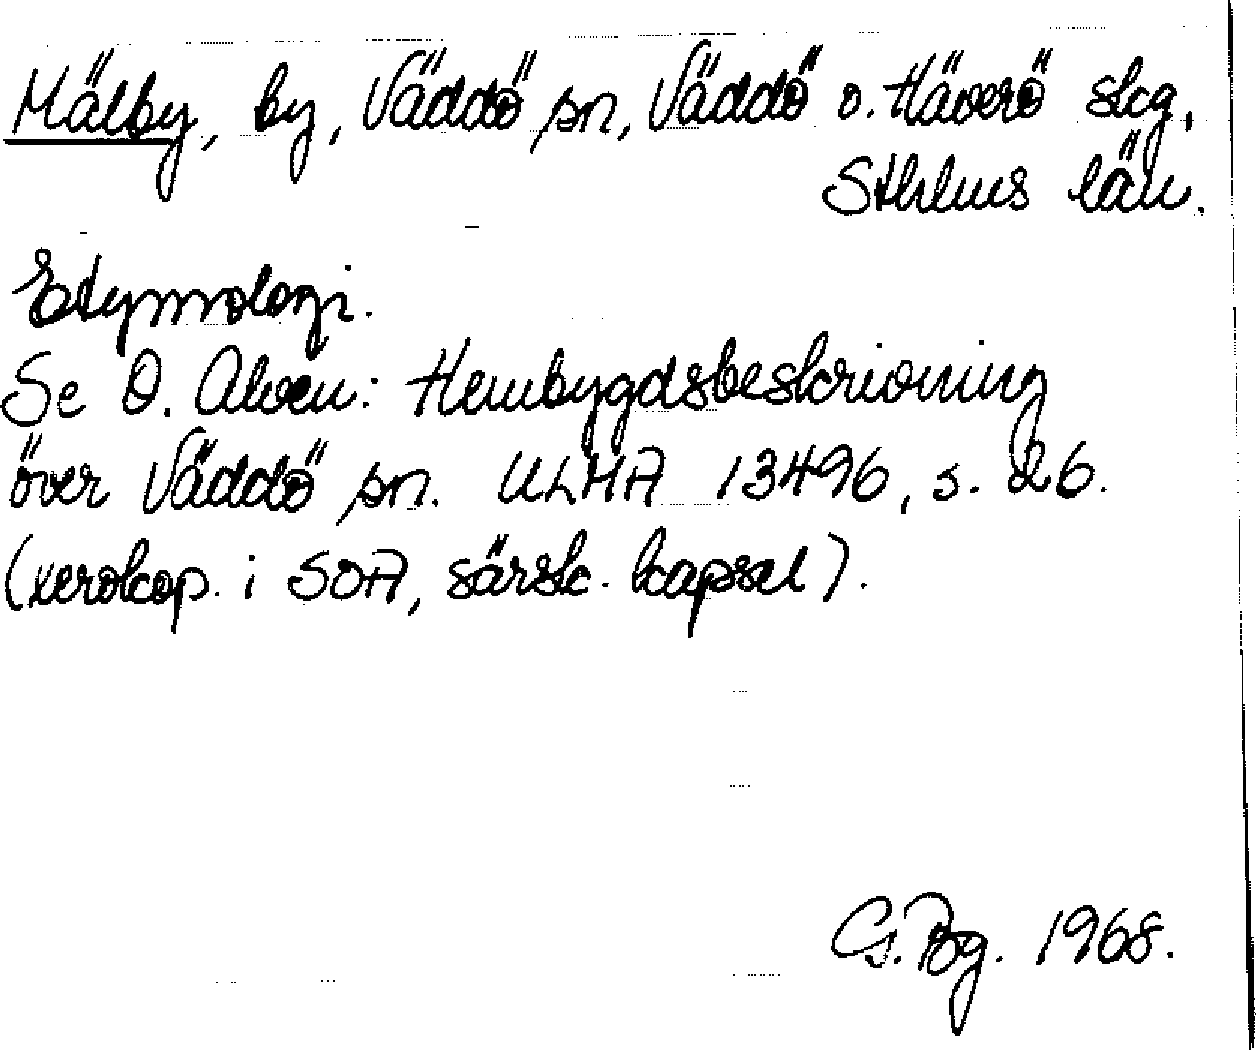 Mälby, by, Väddö sn, Väddö o. Häverö skg,
Sthlms län.
Etymologi.
Se O. Alvén: Hembygdsbeskrivning
över Väddö sn. ULMA 13496, s. 26.
(xerokop. i SOA, särsk. kapsel).
G. Bg. 1968.